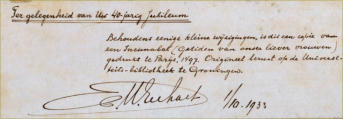 Ter gelegenheid van Uw 40-jarig Jubileum
Behoudens eenige kleine wijzigingen, is dit een copie van
een Incunabel (Getiden van onser liever vrouwen)
gedrukt te Parijs, 1497. Origineel berust op de Universi-
teits-bibliotheek te Groningen.
1/10. 1933